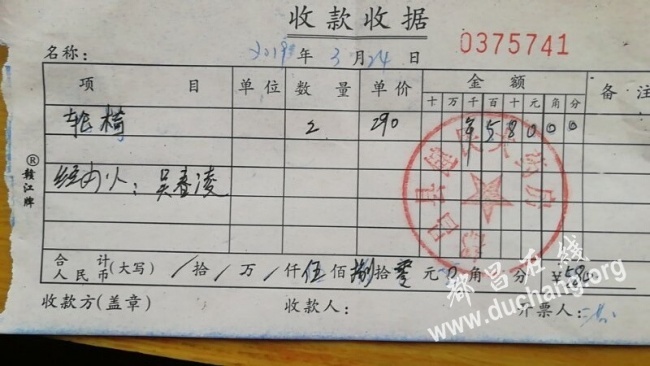 收款收据
0375741
名称: 2019年3月24日
项目 单位 数量 单价 金额 备注
十万千百十元角分
轮椅 2 290 ¥58000
经办人:吴春凌
合计人民币(大写) / 拾 / 万 / 仟 伍 佰 捌 拾 零 元 0 角 分 ¥580
收款方(盖章) 收款人: 开票人:
®赣江牌
都昌在线
www.duchang.org